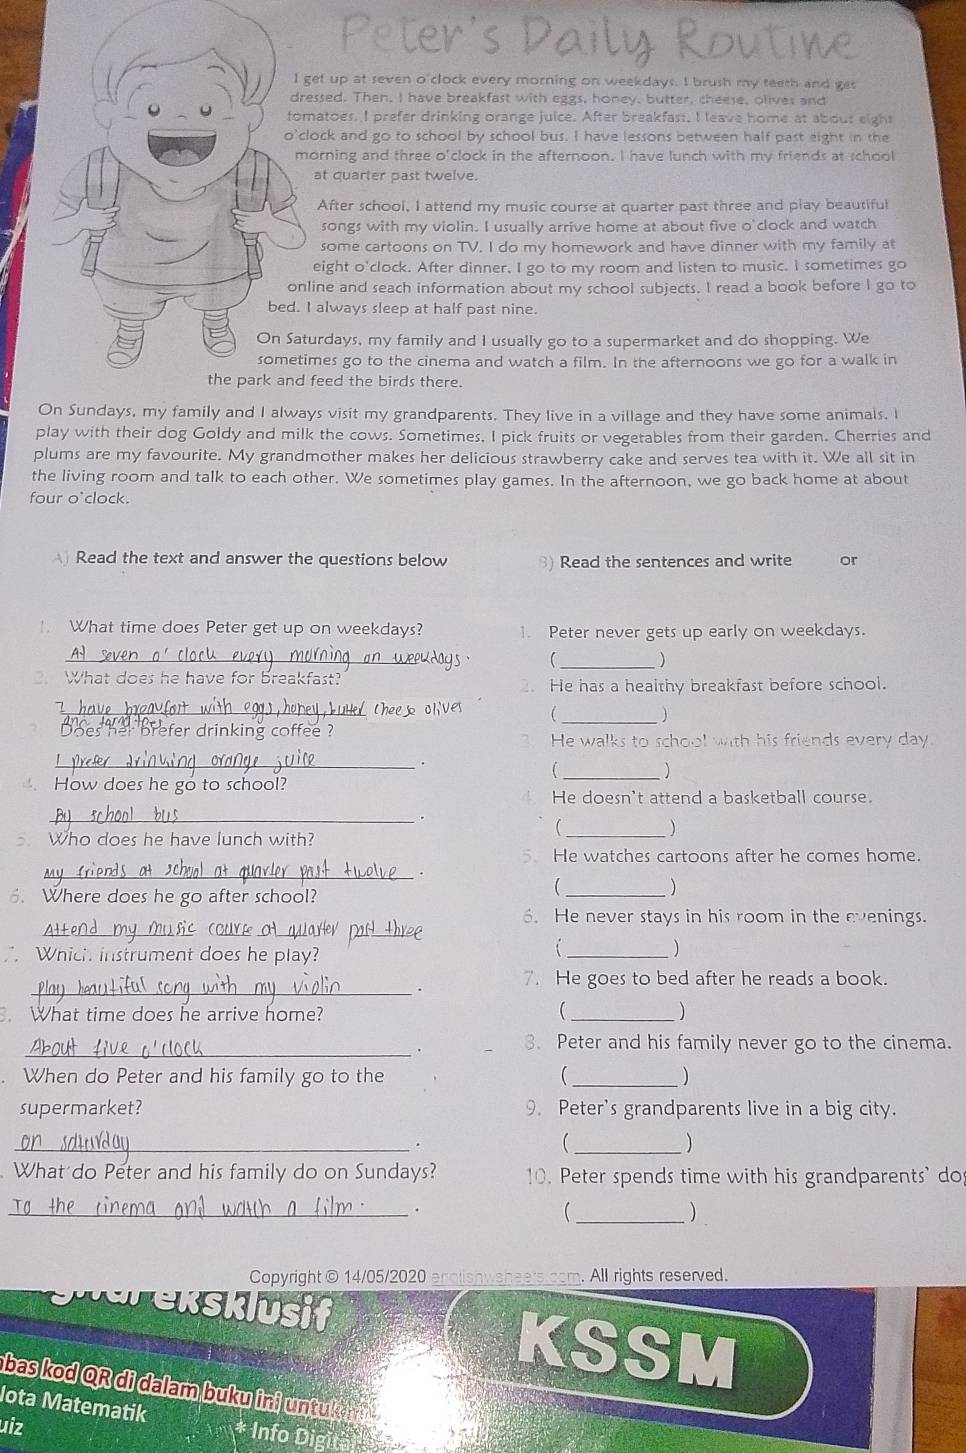 Peter's Daily Routine
I get up at seven o'clock every morning on weekdays. I brush my teeth and get
dressed. Then, I have breakfast with eggs, honey, butter, cheese, olives and
tomatoes. I prefer drinking orange juice. After breakfast, I leave home at about eight
o'clock and go to school by school bus. I have lessons between half past eight in the
morning and three o'clock in the afternoon. I have lunch with my friends at school
at quarter past twelve.
After school, I attend my music course at quarter past three and play beautiful
songs with my violin. I usually arrive home at about five o'clock and watch
some cartoons on TV. I do my homework and have dinner with my family at
eight o'clock. After dinner, I go to my room and listen to music. I sometimes go
online and seach information about my school subjects. I read a book before I go to
bed. I always sleep at half past nine.
On Saturdays, my family and I usually go to a supermarket and do shopping. We
sometimes go to the cinema and watch a film. In the afternoons we go for a walk in
the park and feed the birds there.
On Sundays, my family and I always visit my grandparents. They live in a village and they have some animals. I
play with their dog Goldy and milk the cows. Sometimes, I pick fruits or vegetables from their garden. Cherries and
plums are my favourite. My grandmother makes her delicious strawberry cake and serves tea with it. We all sit in
the living room and talk to each other. We sometimes play games. In the afternoon, we go back home at about
four o'clock.
A) Read the text and answer the questions below
1. What time does Peter get up on weekdays?
At seven o'clock every morning on weekdays.
2. What does he have for breakfast?
I have breakfast with eggs, honey, butter, cheese olives
Does he prefer drinking coffee ?
I prefer drinking orange juice.
4. How does he go to school?
By school bus.
5. Who does he have lunch with?
My friends at school at quarter past twelve.
6. Where does he go after school?
Attend my music course at quarter past three
7. Which instrument does he play?
play beautiful song with my violin.
8. What time does he arrive home?
About five o'clock.
. When do Peter and his family go to the
supermarket?
on saturday.
. What do Peter and his family do on Sundays?
To the cinema and watch a film.
B) Read the sentences and write or
1. Peter never gets up early on weekdays.
(__________)
2. He has a healthy breakfast before school.
(__________)
3 He walks to school with his friends every day
(__________)
4 He doesn't attend a basketball course.
(__________)
5. He watches cartoons after he comes home.
(__________)
6. He never stays in his room in the evenings.
(__________)
7. He goes to bed after he reads a book.
(__________)
8. Peter and his family never go to the cinema.
(__________)
9. Peter's grandparents live in a big city.
(__________)
10. Peter spends time with his grandparents' do
(__________)
Copyright © 14/05/2020 englishwsheets.com. All rights reserved.
eksklusif
KSSM
bas kod QR di dalam buku ini untuk
Nota Matematik
uiz
* Info Digital